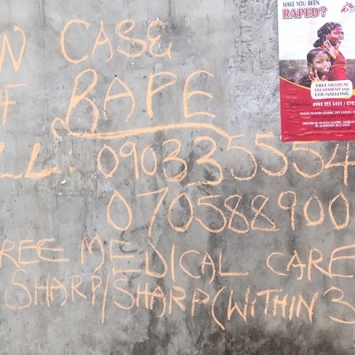 N CASE
F RAPE
LL 090335554
070588900
REE MEDICAL CARE
SHARP/SHARP(WITHIN 3
HAVE YOU BEEN
RAPED?
FREE MEDICAL
TREATMENT AND
COUNSELLING